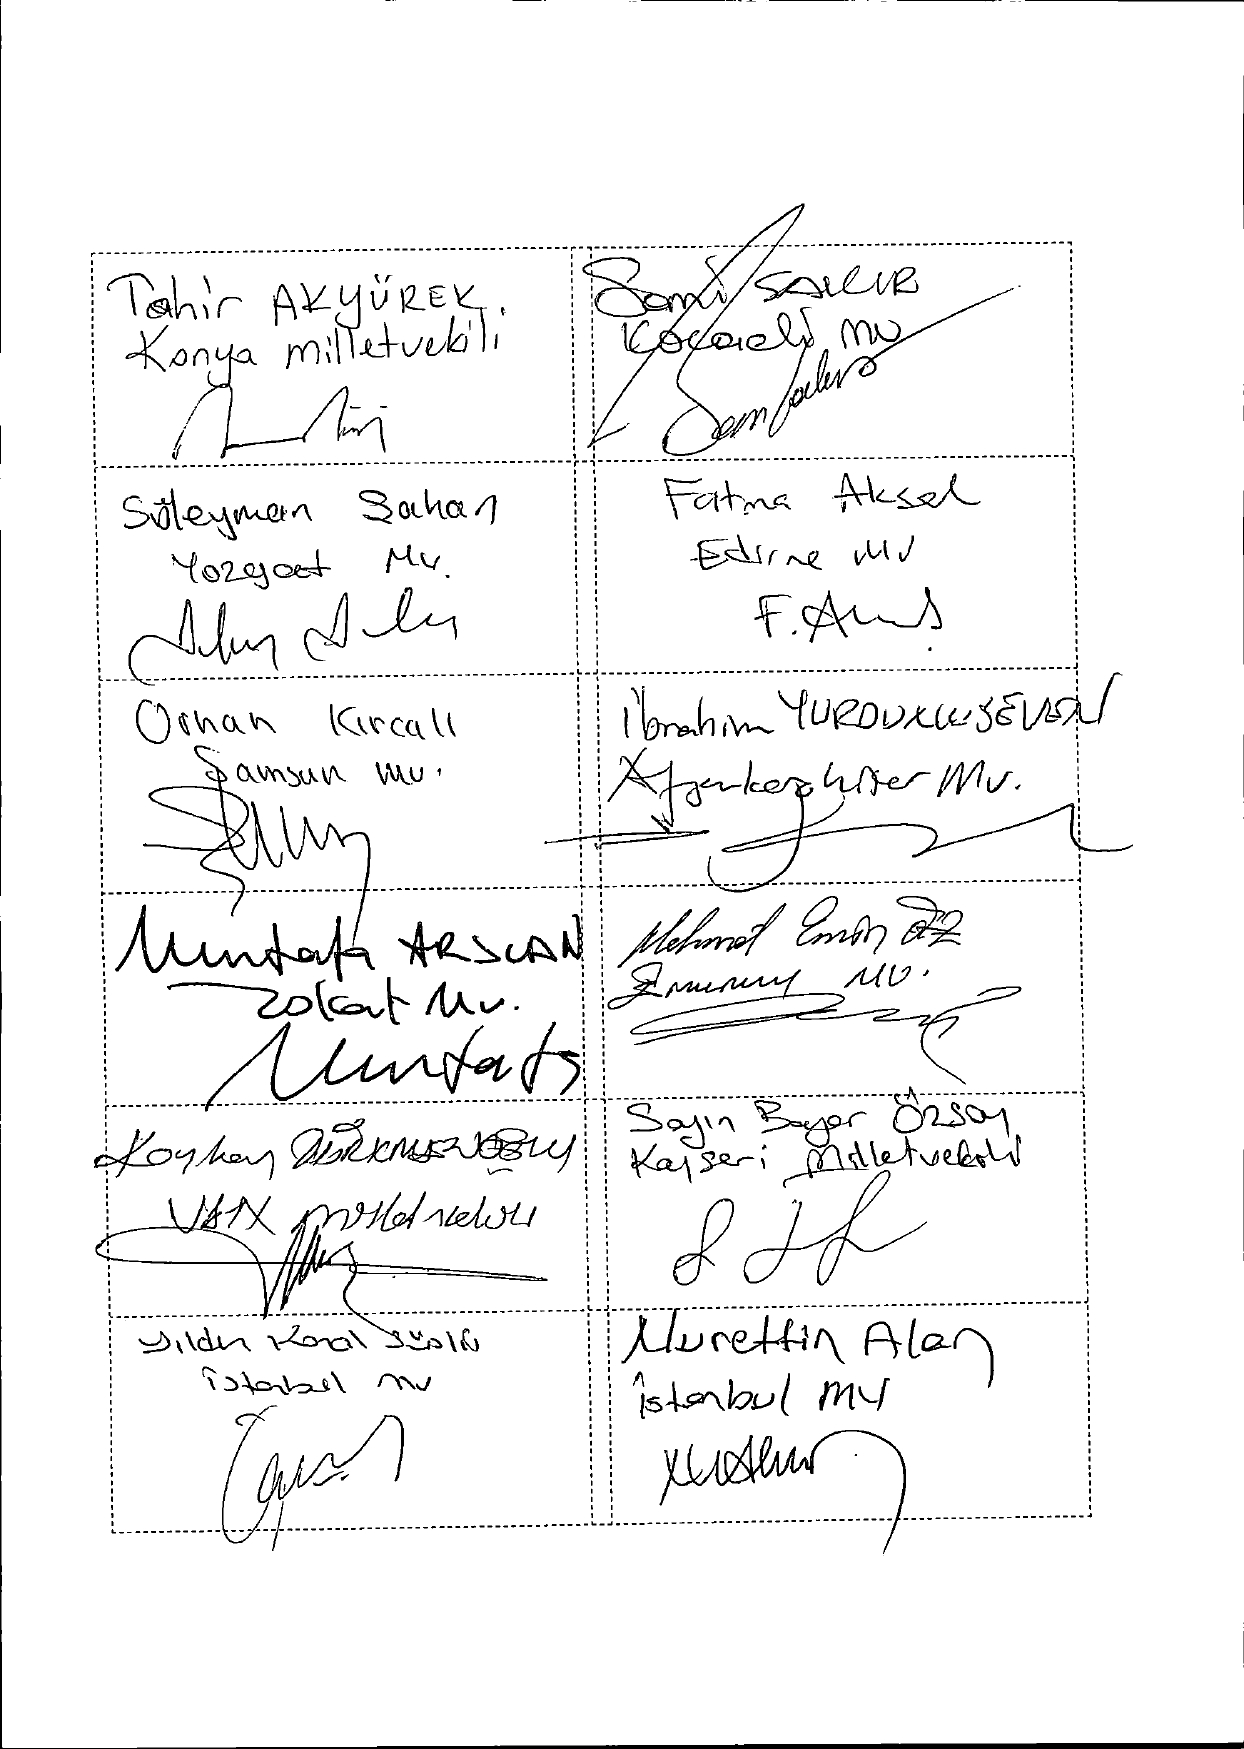 Tahir AKYÜREK.
Konya milletvekili
Sami SAKIR
Kocaeli mv
Süleyman Şahan
Yozgat Mv.
Fatma Aksal
Edirne MV
F. A
Orhan Kırcalı
Samsun mv.
İbrahim YURDUNUSEVEN
Afyonkarahisar Mv.
Mustafa ARSLAN
Tokat Mv.
Mustafa
Mehmet Emin ÖZ
Erzurum MV.
Kayhan TÜRKMENOĞLU
VAN milletvekili
Sayın Bayar ÖZSOY
Kayseri Milletvekili
İstanbul mv
Nurettin Alan
İstanbul MV